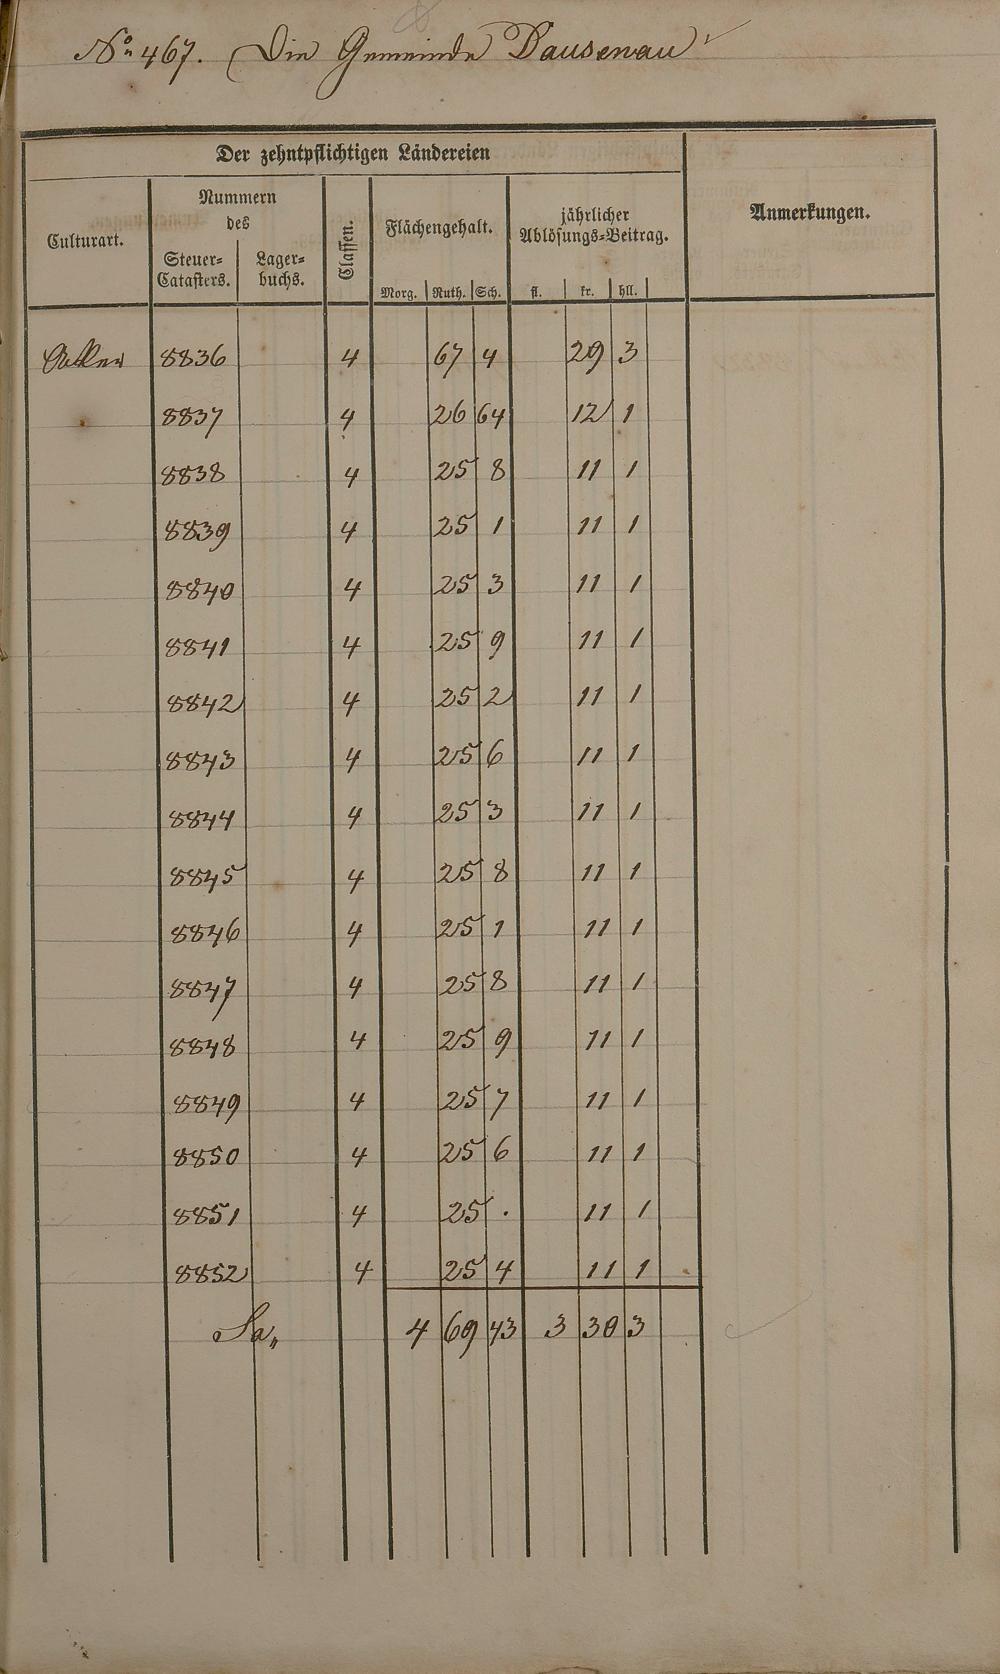 No. 467. Die Gemeinde Dausenau
Der zehntpflichtigen Ländereien
Anmerkungen.
Culturart.
Nummern des
Steuer-Catasters.
Lager-buchs.
Classen.
Flächengehalt.
jährlicher Ablösungs-Beitrag.
Morg. Ruth. Sch. fl. kr. hll.
Acker 8836 4 67 4 29 3
8837 4 26 64 12 1
8838 4 25 8 11 1
8839 4 25 1 11 1
8840 4 25 3 11 1
8841 4 25 9 11 1
8842 4 25 2 11 1
8843 4 25 6 11 1
8844 4 25 3 11 1
8845 4 25 8 11 1
8846 4 25 1 11 1
8847 4 25 8 11 1
8848 4 25 9 11 1
8849 4 25 7 11 1
8850 4 25 6 11 1
8851 4 25 . 11 1
8852 4 25 4 11 1
Sa„ 4 69 43 3 30 3